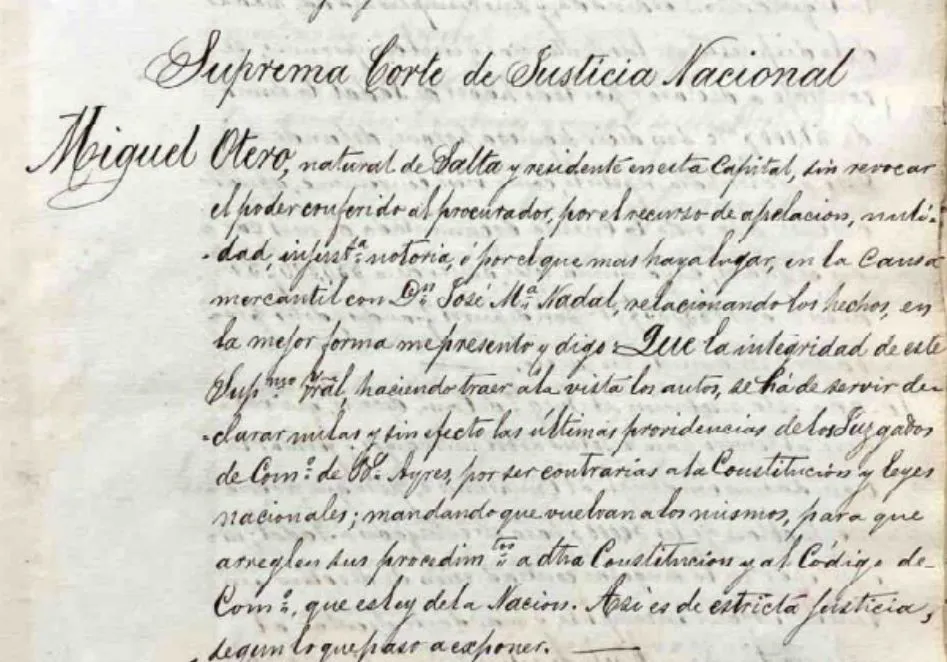 Suprema Corte de Justicia Nacional
Miguel Otero, natural de Salta y residente en esta Capital, sin revocar
el poder conferido al procurador, por el recurso de apelacion, nuli-
-dad, injustª notoria, ó por el que mas haya lugar, en la causa
mercantil con Dn José Mª Nadal, relacionando los hechos, en
la mejor forma me presento y digo: Que la integridad de este
Supmo Tral, haciendo traer á la vista los autos, se há de servir de-
-clarar nulas y sin efecto las últimas providencias de los Juzgados
de Comº de Bs Ayres, por ser contrarias a la Constitucion y leyes
nacionales; mandando que vuelvan a los mismos, para que
arreglen sus procedimtos a dha Constitucion y al Código de
Comº, que es ley de la Nacion. Asi es de estricta justicia,
segun lo que paso a exponer.